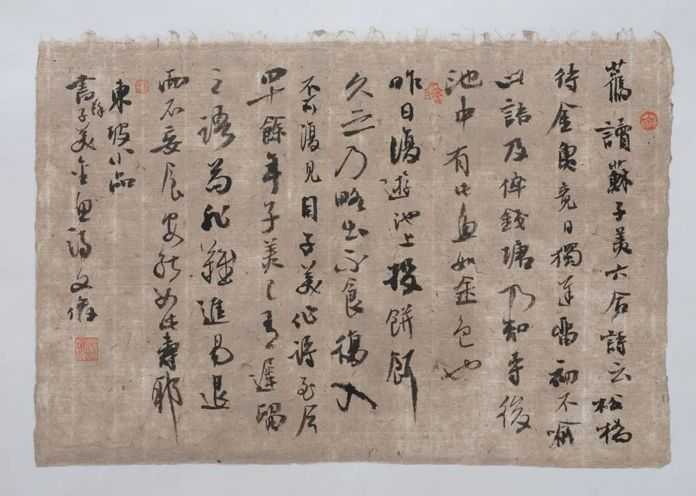 舊讀蘇子美六合詩云松橋
待金魚竟日獨遲留初不喻
此語及倅錢塘乃知寺後
池中有此魚如金色也
昨日復遊池上投餅餌
久之乃略出不食復入
不可復見自子美作詩至今
四十餘年子美已有遲留
之語苟非難進易退
而不妄食安能如此壽耶
東坡小品
書蘇子美金魚詩文